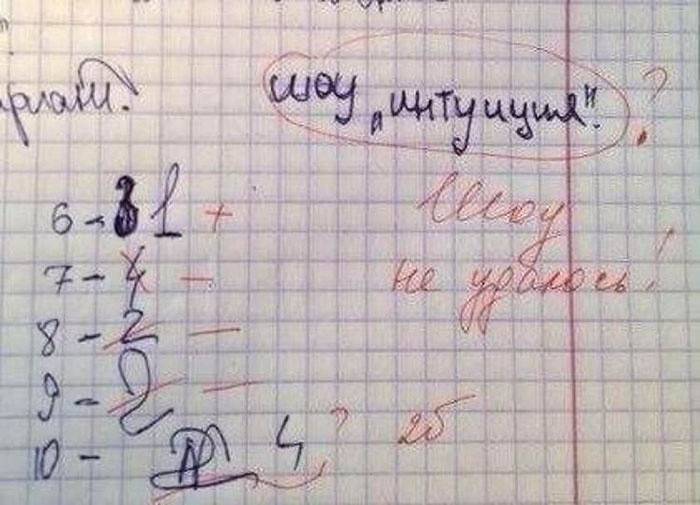 шоу „интуиция". ?
6 - 1 + Шоу
7 - 4 - не удалось!
8 - 2 -
9 - 2 -
10 - 4 ? 2б